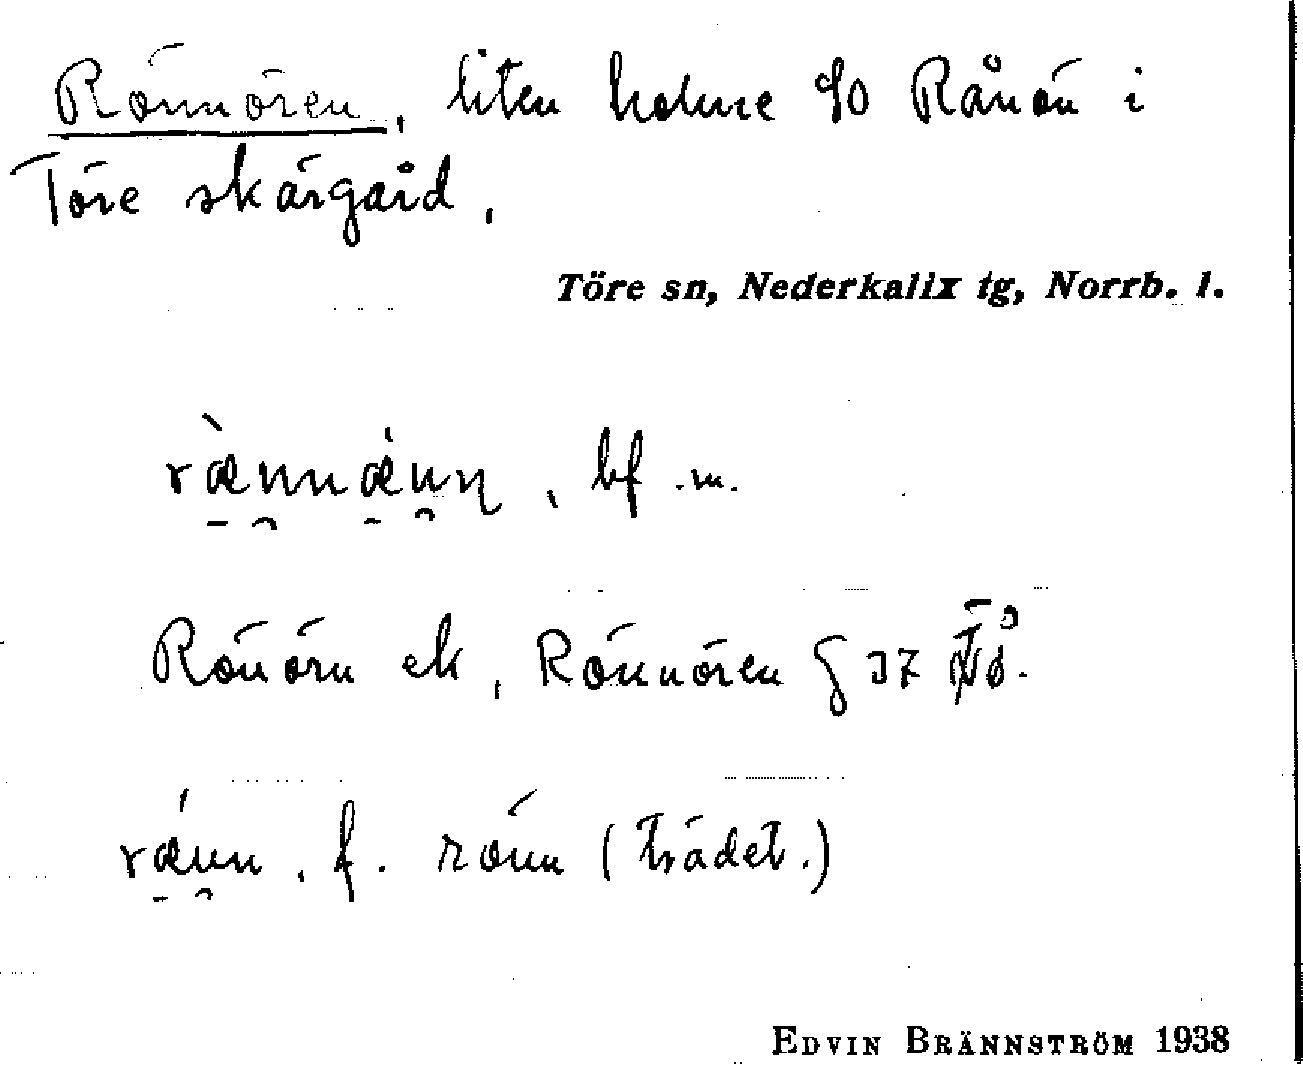 Rönnören, liten holme SO Rånön i
Töre skärgård.
Töre sn, Nederkalix tg, Norrb. l.
rænnænn, bf. m.
Rönörn ek, Rönnören § 37
rænn, f. rönn (trädet.)
EDVIN BRÄNNSTRÖM 1938